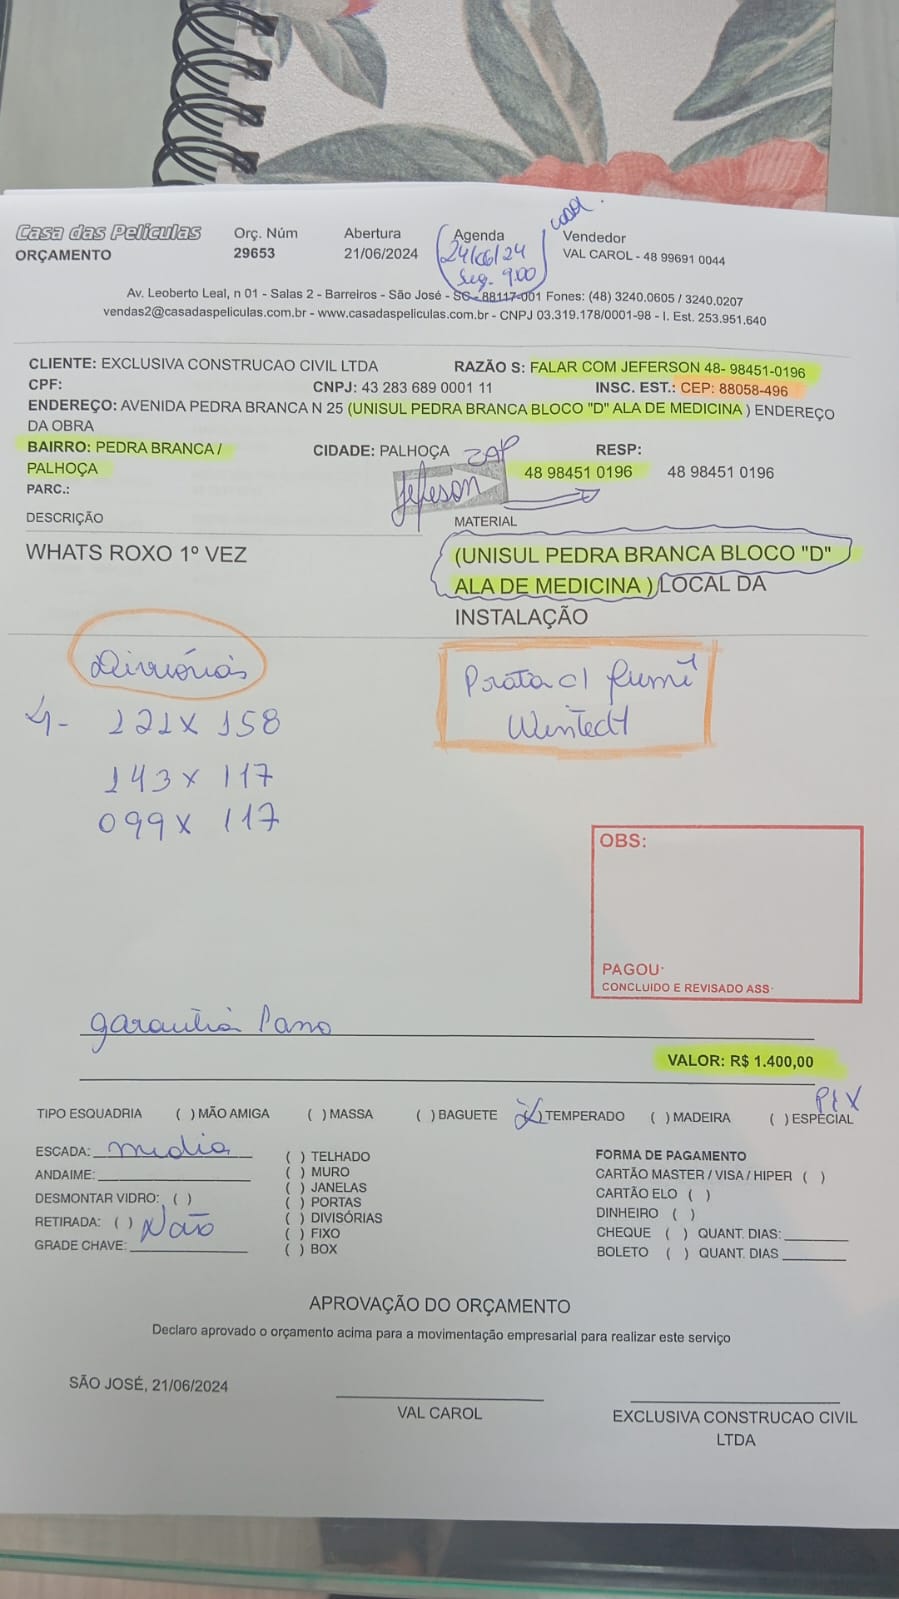 Casa das Películas
ORÇAMENTO
Orç. Núm
29653
Abertura
21/06/2024
Agenda
24/06/24
Seg. 9:00
Vendedor
VAL CAROL - 48 99691 0044
Av. Leoberto Leal, n 01 - Salas 2 - Barreiros - São José - SC - 88117-001 Fones: (48) 3240.0605 / 3240.0207
vendas2@casadaspeliculas.com.br - www.casadaspeliculas.com.br - CNPJ 03.319.178/0001-98 - I. Est. 253.951.640
CLIENTE: EXCLUSIVA CONSTRUCAO CIVIL LTDA
RAZÃO S: FALAR COM JEFERSON 48- 98451-0196
CPF:
CNPJ: 43 283 689 0001 11
INSC. EST.: CEP: 88058-496
ENDEREÇO: AVENIDA PEDRA BRANCA N 25 (UNISUL PEDRA BRANCA BLOCO "D" ALA DE MEDICINA ) ENDEREÇO
DA OBRA
BAIRRO: PEDRA BRANCA /
PALHOÇA
CIDADE: PALHOÇA
ZAP
RESP:
48 98451 0196
48 98451 0196
PARC.:
Jeferson
DESCRIÇÃO
MATERIAL
WHATS ROXO 1º VEZ
(UNISUL PEDRA BRANCA BLOCO "D"
ALA DE MEDICINA ) LOCAL DA
INSTALAÇÃO
Divisórias
4- 121 x 158
143 x 117
099 x 117
Prata c/ fumê
Wintech
OBS:
PAGOU·
CONCLUIDO E REVISADO ASS·
garantia 1 ano
VALOR: R$ 1.400,00
PIX
TIPO ESQUADRIA ( ) MÃO AMIGA ( ) MASSA ( ) BAGUETE (X) TEMPERADO ( ) MADEIRA ( ) ESPECIAL
ESCADA: media
ANDAIME:
DESMONTAR VIDRO: ( )
RETIRADA: ( ) Não
GRADE CHAVE:
( ) TELHADO
( ) MURO
( ) JANELAS
( ) PORTAS
( ) DIVISÓRIAS
( ) FIXO
( ) BOX
FORMA DE PAGAMENTO
CARTÃO MASTER / VISA / HIPER ( )
CARTÃO ELO ( )
DINHEIRO ( )
CHEQUE ( ) QUANT. DIAS:
BOLETO ( ) QUANT. DIAS
APROVAÇÃO DO ORÇAMENTO
Declaro aprovado o orçamento acima para a movimentação empresarial para realizar este serviço
SÃO JOSÉ, 21/06/2024
VAL CAROL
EXCLUSIVA CONSTRUCAO CIVIL
LTDA